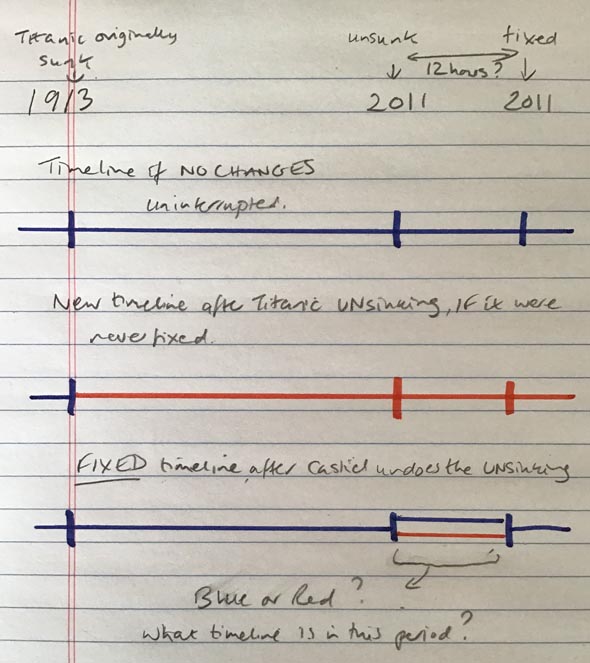 Titanic originally sunk
unsunk
fixed
12 hours?
1913
2011
2011
Timeline if NO CHANGES
uninterrupted.
New timeline after Titanic UNsinking, IF it were
never fixed.
FIXED timeline, after Castiel undoes the UNSINKING
Blue or Red?
What timeline is in this period?